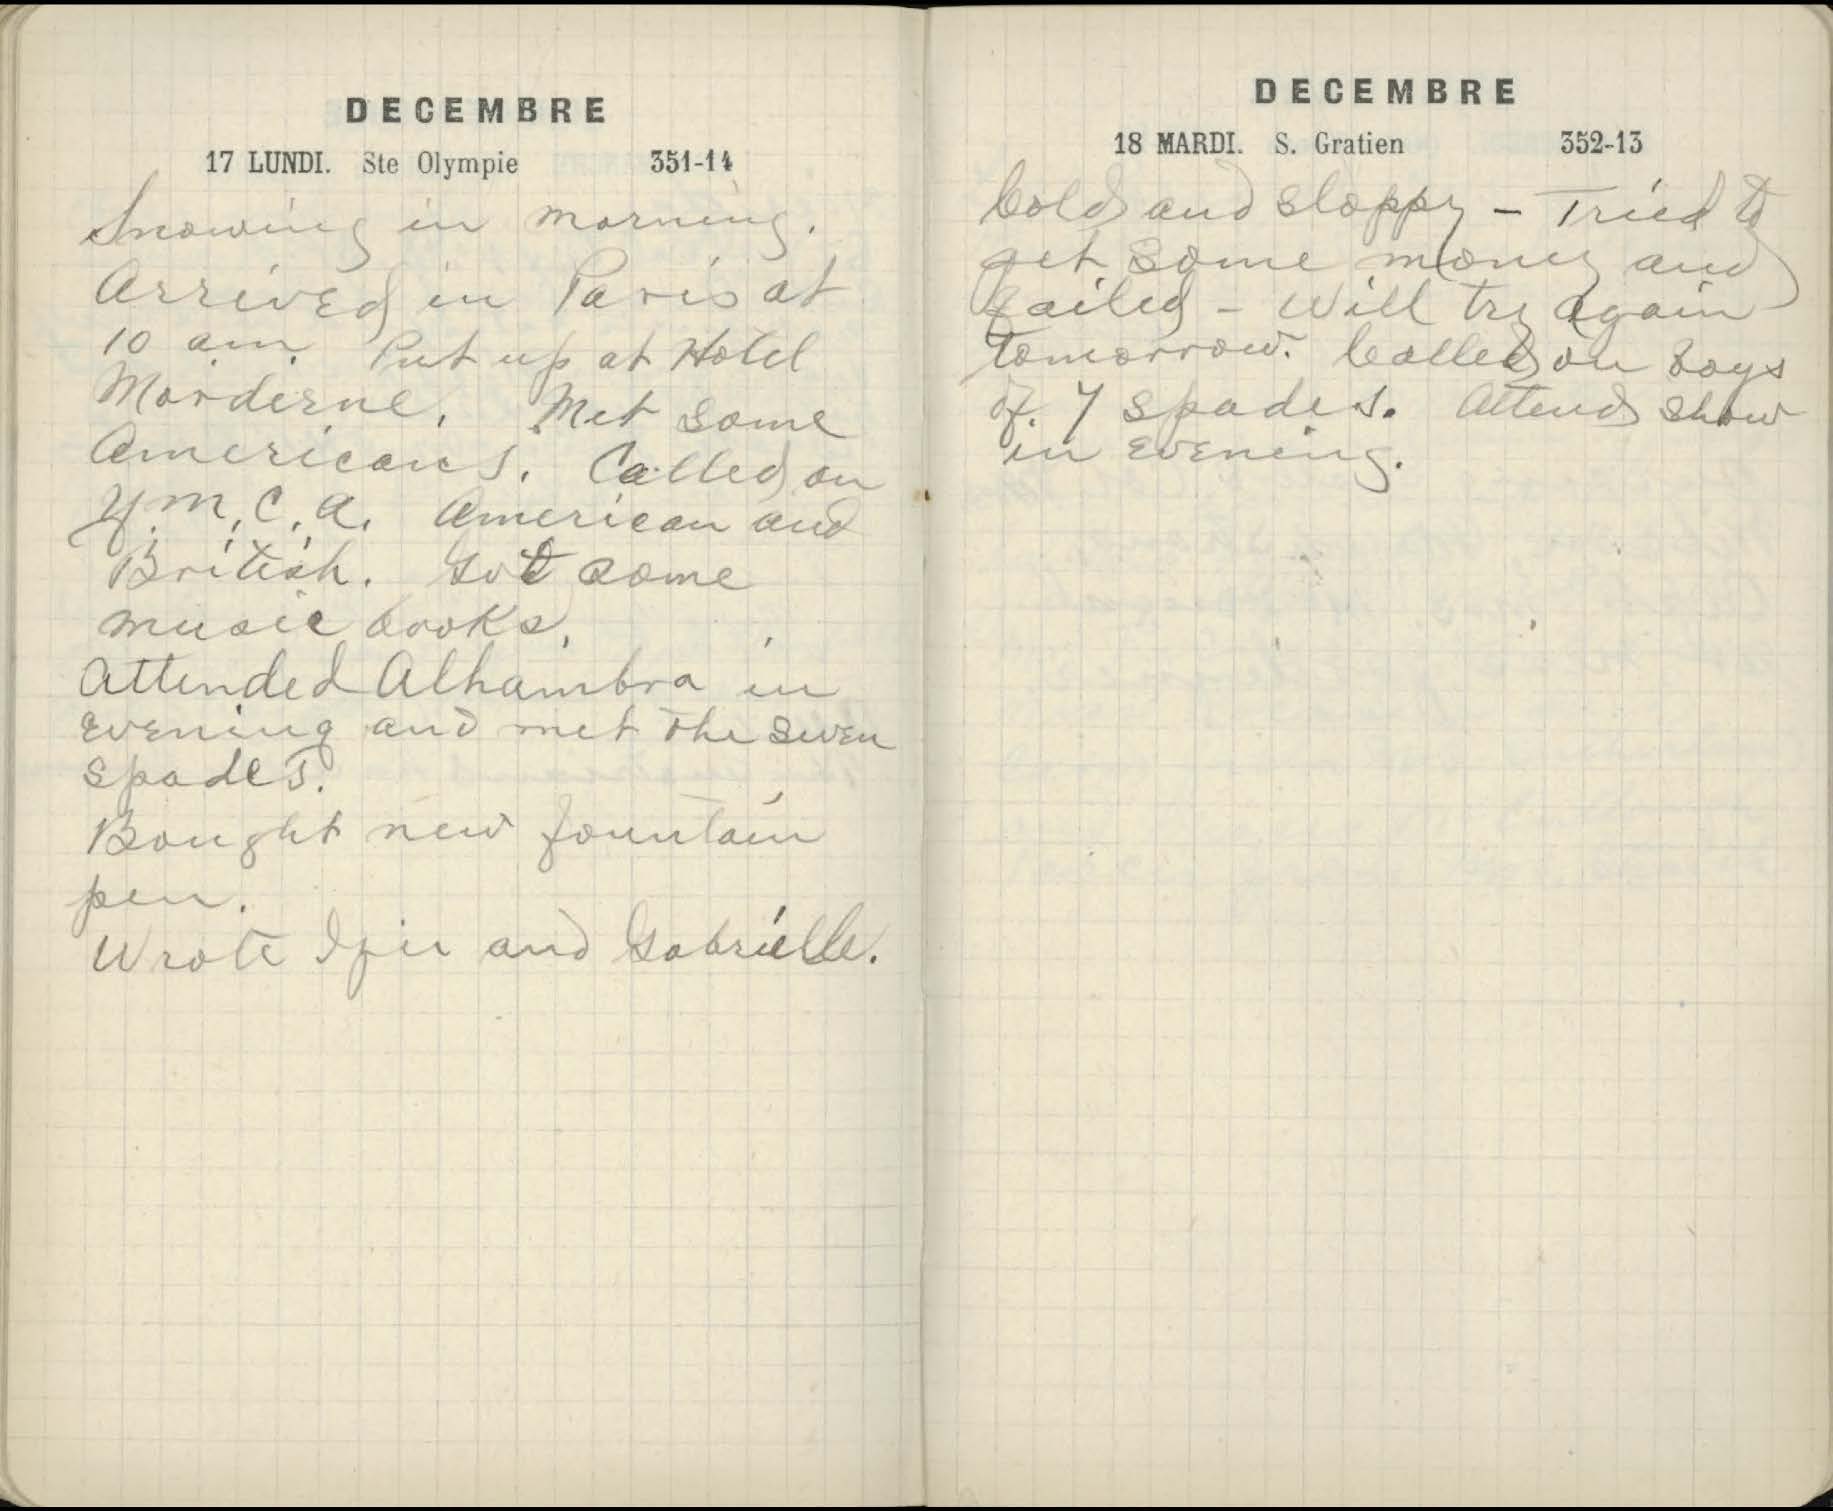 DECEMBRE
17 LUNDI. Ste Olympie 351-14
Snowing in morning.
Arrived in Paris at
10 am. Put up at Hotel
Morderne. Met some
Americans. Called on
Y.M.C.A. American and
British. Got some
music books.
Attended Alhambra in
evening and met the seven
spades.
Bought new fountain
pen.
Wrote and Gabrielle.
DECEMBRE
18 MARDI. S. Gratien 352-13
Cold and sloppy - Tried to
get some money and
failed - Will try again
tomorrow. Called on boys
of 7 spades. Attend show
in evening.